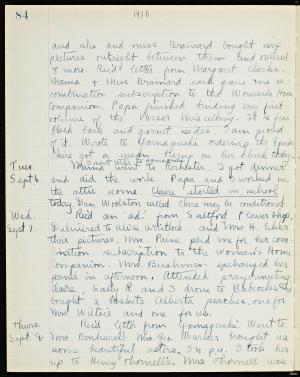 84 1910
and she and Miss Brainard bought six
pictures outright between them and ordered
4 more. Rec'd letter from Margaret Clarke.
Mama & Miss Brainard each gave me a
combination subscription to the Woman's Home
Companion. Papa finished binding my first
volume of the Vassar Miscellany. It has
black back and garnet sides. I am proud
of it. Wrote to Yamaguchi ordering the
got a
Tues. Mama went to Rochester. I got dinner
Sept 6. and did the work. Papa and I worked in
the attic some. Claire started in school
today. Dan Woolston called. Clare may be conditioned
Wed. Rec'd an ad. from Saltford Flower Shop.
Sept 7. Delivered to Alice and Mrs H.
their pictures. Mrs. Paine paid me for her com-
bination subscription to the Woman's Home
Companion. Mrs. exchanged her
panel in afternoon. Attended prayermeeting
Claire, Sally R and I drove to Babcock's &
bought 2 baskets Alberta peaches, one for
Mrs Willie and one for us.
Thurs. Rec'd letter from Yamaguchi. Went to
Sept. 8 Mrs Mrs. Geo. Barker brought us
some beautiful asters. In p.m. I took her
up to Henry Thornell's. Mrs Thornell was